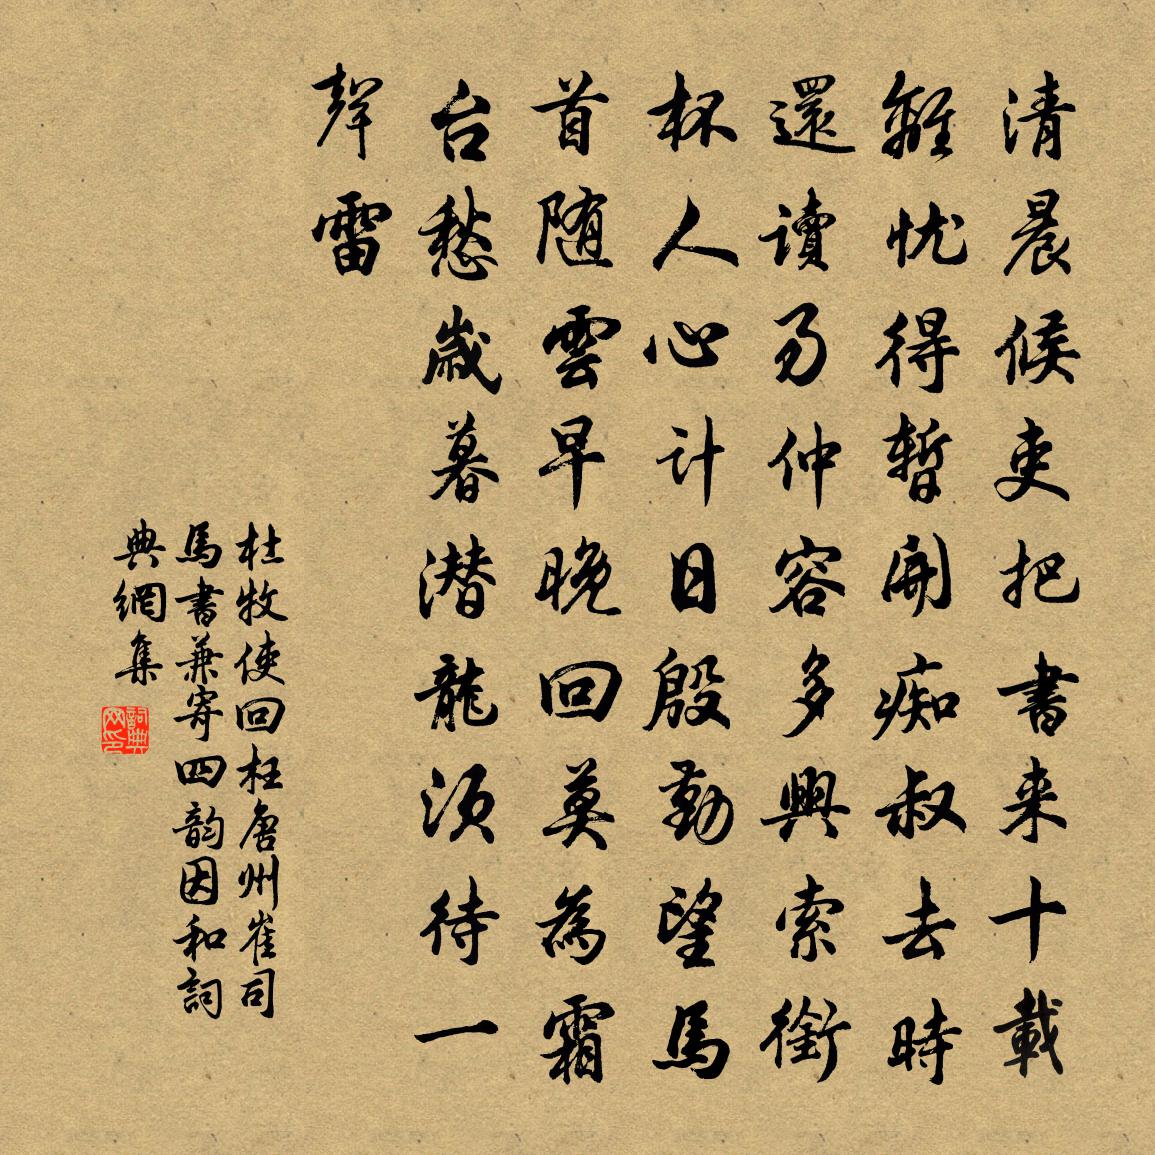 清晨候吏把書来十載
離忧得暫開痴叔去時
還讀易仲容多興索銜
杯人心計日殷勤望馬
首随雲早晚回莫為霜
台愁歲暮潜龍須待一
聲雷
杜牧使回枉唐州崔司
馬書兼寄四韵因和詞
典網集
詞典
网印